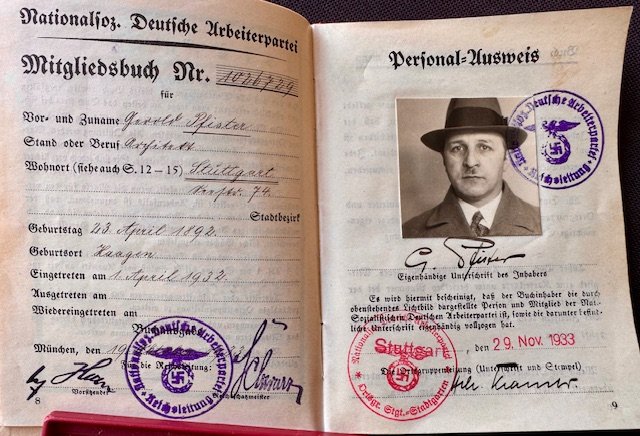 Nationalsoz. Deutsche Arbeiterpartei
Mitgliedsbuch Nr. 1026729
für
Vor- und Zuname Gerold Pfister
Stand oder Beruf Architekt
Wohnort (siehe auch S. 12–15) Stuttgart
74.
Stadtbezirk
Geburtstag 23. April 1892.
Geburtsort Haagen
Eingetreten am 1. April 1932.
Ausgetreten am
Wiedereingetreten am
Buchausgabe
München, den 19
Für die Reichsleitung:
Vorsitzender
Reichsschatzmeister
Nationalsoz. Deutsche Arbeiterpartei
Reichsleitung
8
Personal-Ausweis
Nationalsoz. Deutsche Arbeiterpartei
Reichsleitung
G. Pfister
Eigenhändige Unterschrift des Inhabers
Es wird hiermit bescheinigt, daß der Buchinhaber die durch
obenstehendes Lichtbild dargestellte Person und Mitglied der Nat.
Sozialistischen Deutschen Arbeiterpartei ist, sowie die darunter befind-
liche Unterschrift eigenhändig vollzogen hat.
Stuttgart, den 29. Nov. 1933
Die Ortsgruppenleitung (Unterschrift und Stempel)
Ortsgr. Stgt.-Stadtgarten
9